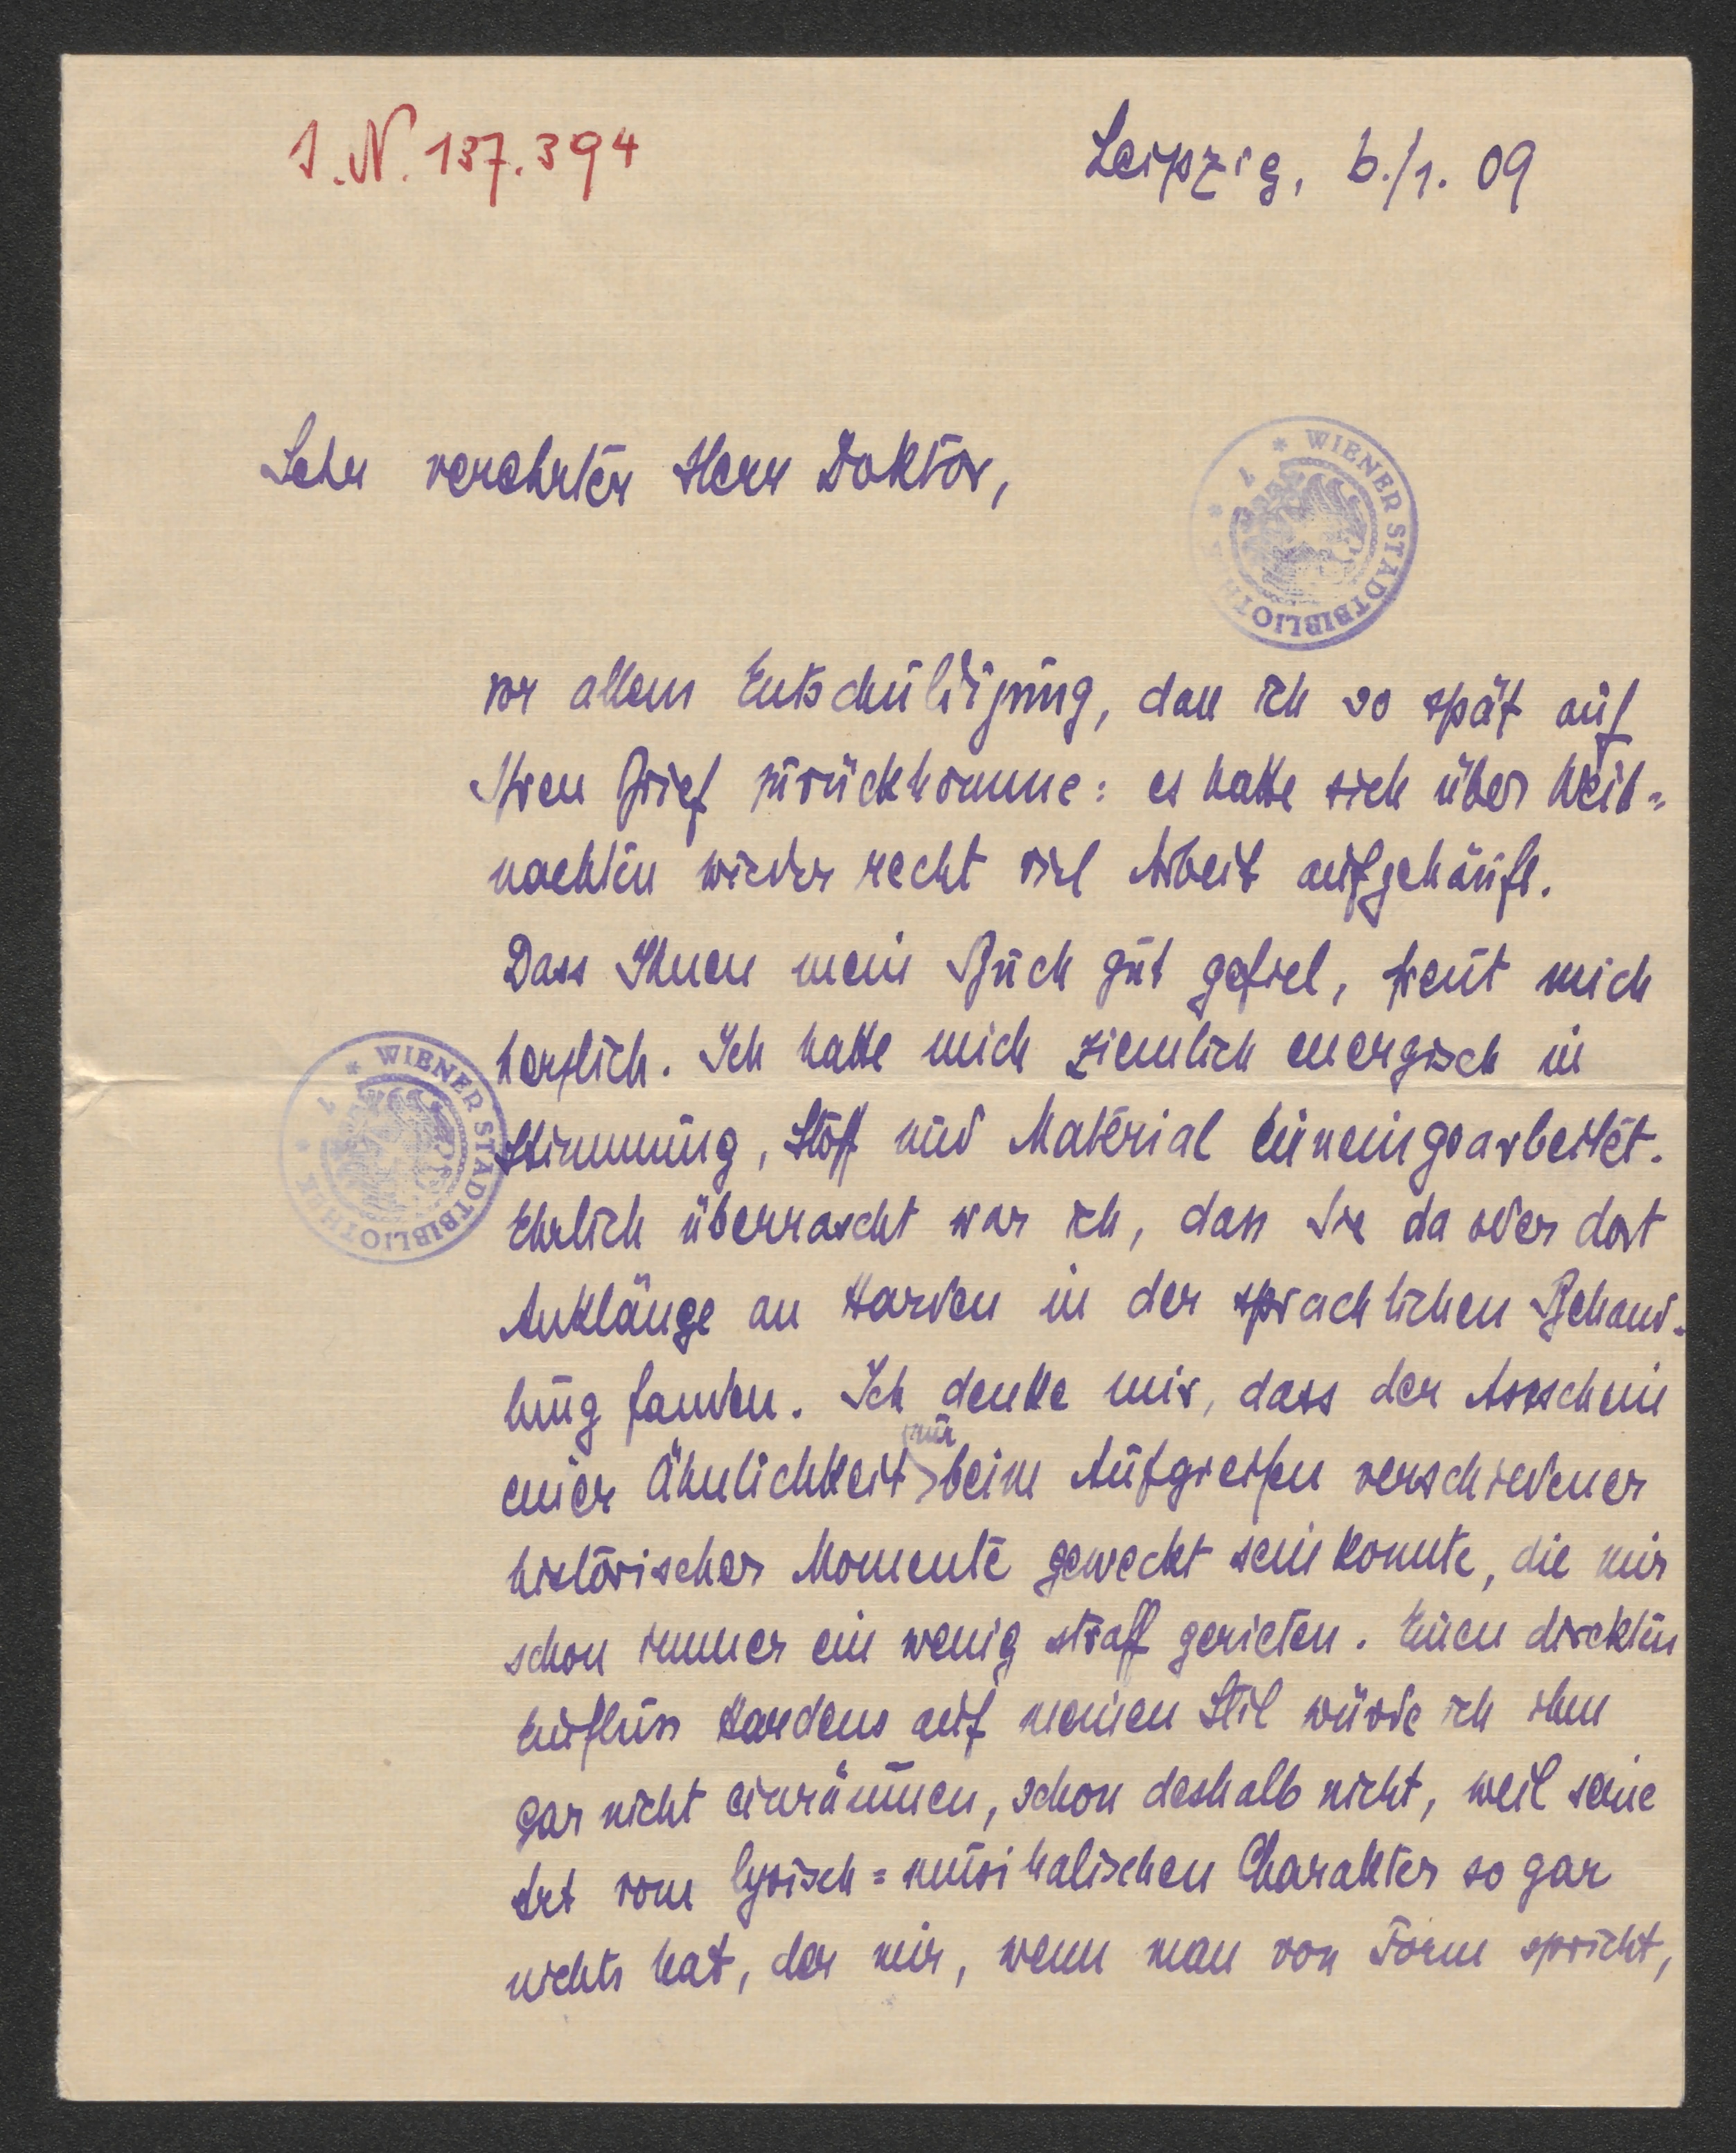 I.N. 137.394
Leipzig, 6./1. 09
Sehr verehrter Herr Doktor,
* WIENER STADTBIBLIOTHEK * 1
vor allem Entschuldigung, dass ich so spät auf
Ihren Brief zurückkomme: es hatte sich über Weih=
nachten wieder recht viel Arbeit aufgehäuft.
Dass Ihnen mein Buch gut gefiel, freut mich
herzlich. Ich hatte mich ziemlich energisch in
* WIENER STADTBIBLIOTHEK * 1
Stimmung, Stoff und Material hineingearbeitet.
Ehrlich überrascht war ich, dass Sie da oder dort
Anklänge an Harden in der sprachlichen Behand-
lung fanden. Ich denke mir, dass der Anschein
nur
einer Ähnlichkeit beim Aufgreifen verschiedener
historischer Momente geweckt sein konnte, die mir
schon immer ein wenig straff gerieten. Einen direkten
Einfluss Hardens auf meinen Stil würde ich ihm
gar nicht einräumen, schon deshalb nicht, weil seine
Art vom lyrisch=musikalischen Charakter so gar
nichts hat, der mir, wenn man von Form spricht,